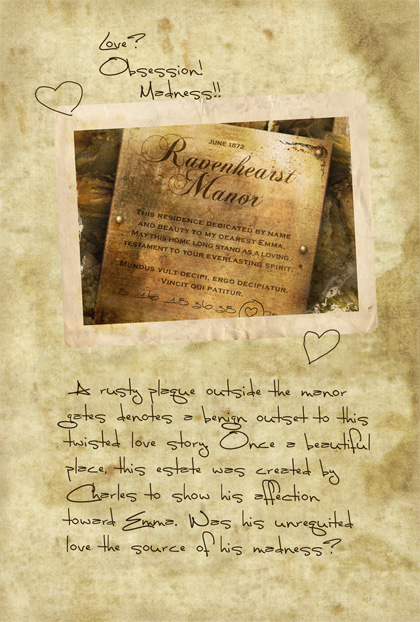 Love?
Obsession!
Madness!!
JUNE 1872
Ravenhearst
Manor
THIS RESIDENCE DEDICATED BY NAME
AND BEAUTY TO MY DEAREST EMMA.
MAY THIS HOME LONG STAND AS A LOVING
TESTAMENT TO YOUR EVERLASTING SPIRIT.
MUNDUS VULT DECIPI, ERGO DECIPIATUR.
VINCIT QUI PATITUR.
A rusty plaque outside the manor
gates denotes a benign outset to this
twisted love story. Once a beautiful
place, this estate was created by
Charles to show his affection
toward Emma. Was his unrequited
love the source of his madness?